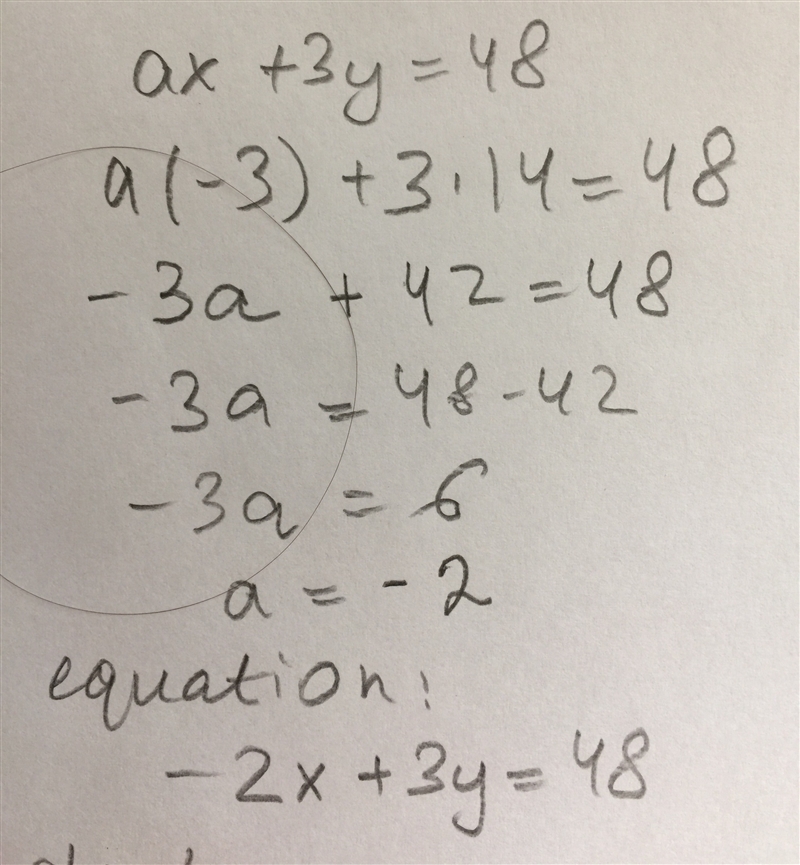 ax + 3y = 48
a(-3) + 3·14 = 48
-3a + 42 = 48
-3a = 48 - 42
-3a = 6
a = -2
equation:
-2x + 3y = 48